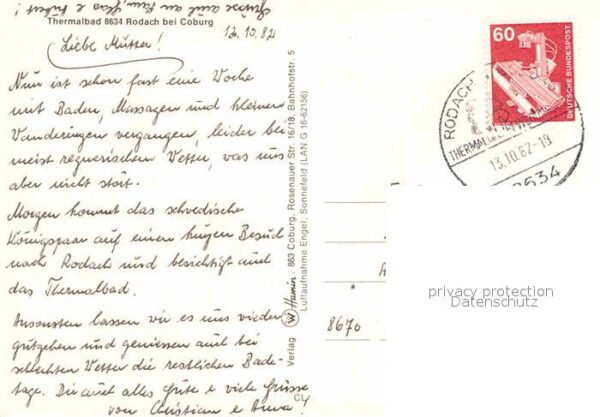 Grüsse auch an
Thermalbad 8634 Rodach bei Coburg
12.10.82
Liebe Mutter!
Nun ist schon fast eine Woche
mit Baden, Massagen und kleinen
Wanderungen vergangen, leider bei
meist regnerischem Wetter, was uns
aber nicht stört.
Morgen kommt das schwedische
Königspaar auf einen kurzen Besuch
nach Rodach und besichtigt auch
das Thermalbad.
Ansonsten lassen wir es uns wieder
gutgehen und geniessen auch bei
schlechten Wetter die restlichen Bade-
tage. Dir auch alles Gute e viele Grüsse
von Christian e Anna!
CL4
Verlag Hamin, 863 Coburg, Rosenauer Str. 16/18, Bahnhofstr. 5
Luftaufnahme Engel, Sonnefeld (LAN G 16-62156)
60
DEUTSCHE BUNDESPOST
RODACH
THERMAL
13.10.82-19
8634
8670
privacy protection
Datenschutz